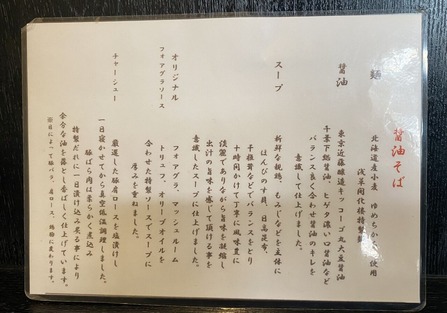 醤油そば
麺
北海道産小麦 ゆめちから 使用
浅草開化楼特製麺
醤油
千葉下総醤油、ヒゲタ濃い口醤油など
東京近藤醸造キッコーゴ丸大豆醤油
バランス良く合わせ醤油のキレを
意識して仕上げました。
スープ
新鮮な親鶏、もみじなどを主体に
はんぴのす貝、日高昆布、
千椎茸などでバランスをとり
十時間かけて丁寧に風味豊に
淡麗でありながら旨味を凝縮し
出汁の旨味を感じて頂ける事を
意識したスープに仕上げました。
オリジナル
フォアグラソース
フォアグラ、マッシュルーム
トリュフ、オリーブオイルを
合わせた特製ソースでスープに
厚みを重ねました。
チャーシュー
厳選した豚肩ロースを塩漬けし
一日寝かせてから真空低温調理しました。
豚ばら肉は柔らかく煮込み
特製だれに一日漬け込み炙る事により
余分な油を落とし香ばしく仕上げています。
※日によって豚バラ、肩ロース、鶏胸に変わります。